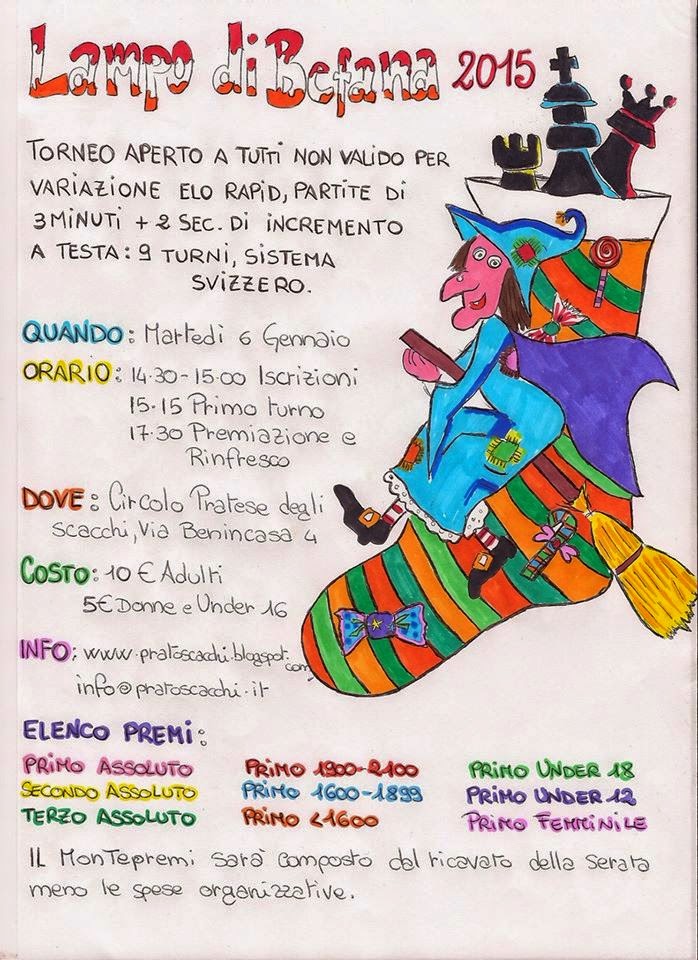 Lampo di Befana 2015
TORNEO APERTO A TUTTI NON VALIDO PER
VARIAZIONE ELO RAPID, PARTITE DI
3 MINUTI + 2 SEC. DI INCREMENTO
A TESTA: 9 TURNI, SISTEMA
SVIZZERO.
QUANDO: Martedì 6 Gennaio
ORARIO: 14.30-15.00 Iscrizioni
15.15 Primo turno
17.30 Premiazione e
Rinfresco
DOVE: Circolo Pratese degli
scacchi, Via Benincasa 4
COSTO: 10 € Adulti
5€ Donne e Under 16
INFO: www.pratoscacchi.blogspot.com
info@pratoscacchi.it
ELENCO PREMI:
PRIMO ASSOLUTO PRIMO 1900-2100 PRIMO UNDER 18
SECONDO ASSOLUTO PRIMO 1600-1899 PRIMO UNDER 12
TERZO ASSOLUTO PRIMO <1600 PRIMO FEMMINILE
IL MONTEPREMI sarà composto dal ricavato della serata
meno le spese organizzative.